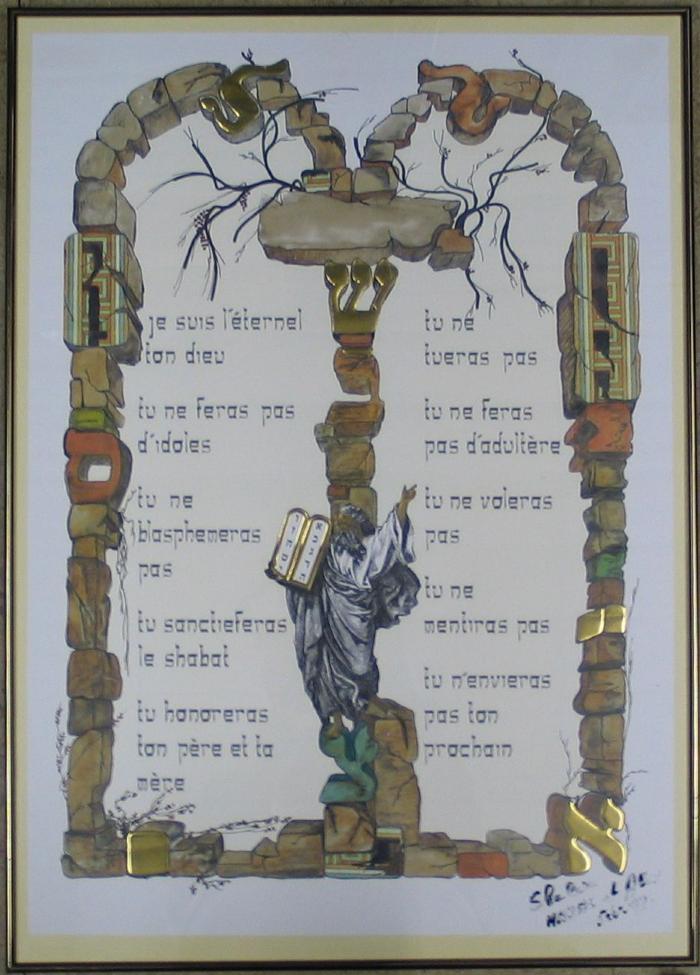 je suis l'éternel
ton dieu
tu ne feras pas
d'idoles
tu ne
blasphemeras
pas
tu sanctieferas
le shabat
tu honoreras
ton père et ta
mère
tu ne
tueras pas
tu ne feras
pas d'adultère
tu ne voleras
pas
tu ne
mentiras pas
tu n'envieras
pas ton
prochain